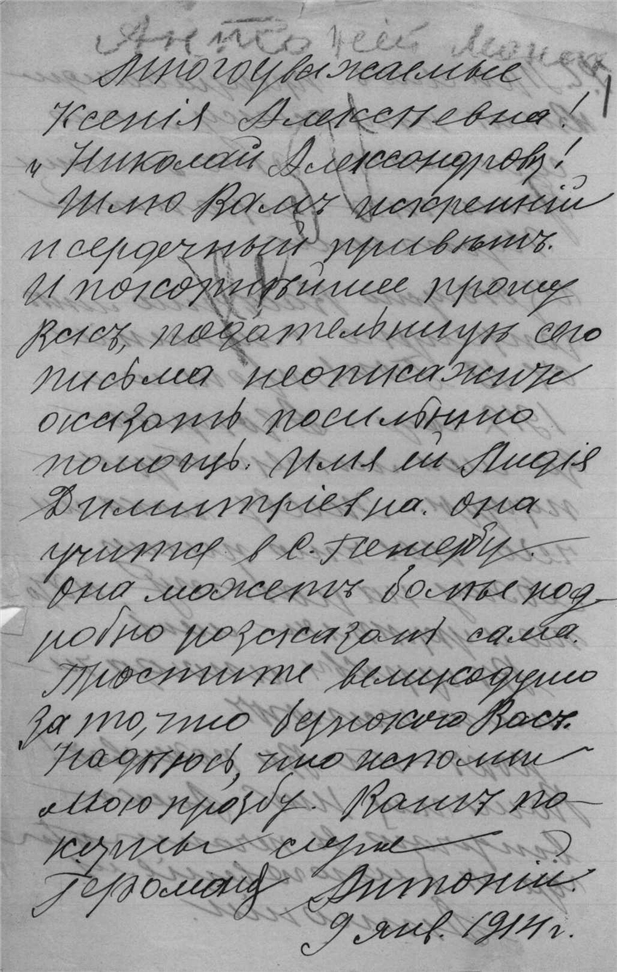 Антоній Монах
Многоуважаемые
Ксенія Алексѣевна!
и Николай Александровъ!
Шлю Вамъ искренній
и сердечный привѣтъ.
И покорнѣйшее прошу
Васъ, подательницу сего
письма
оказать посильную
помощь. Имя ей Лидія
Димитріевна. она
учится в С. Петербу
она можетъ болѣе под-
робно розсказать сама.
Простите великодушно
за то, что безпокою Васъ.
Надѣюсь, что исполни
мою прозбу. Вашъ по-
корны слуга
Іеромонах Антоній.
9 янв. 1914 г.